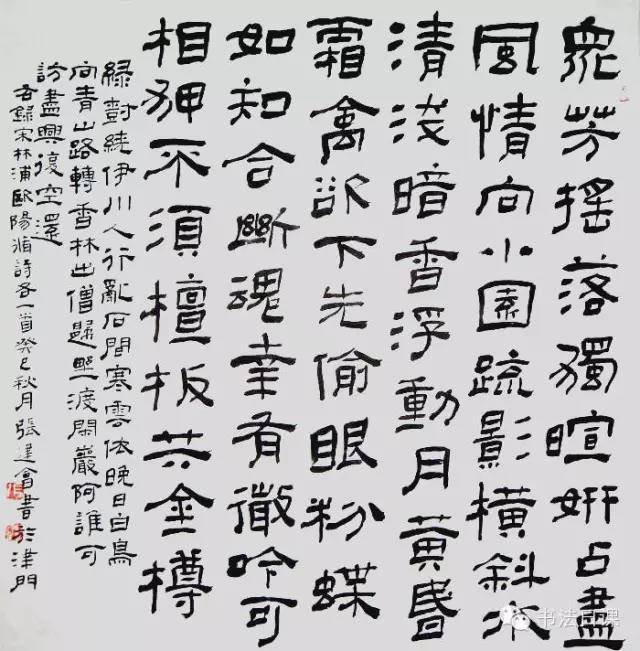 眾芳搖落獨暄妍占盡
風情向小園疏影橫斜水
清淺暗香浮動月黃昏
霜禽欲下先偷眼粉蝶
如知合斷魂幸有微吟可
相狎不須檀板共金樽
綠樹繞伊川人行亂石間寒雲依晚日白鳥
向青山路轉香林出僧歸野渡閑巖阿誰可
訪盡興復空還
右錄宋林浦歐陽脩詩各一首癸巳秋月張建會書於津門
书法日课